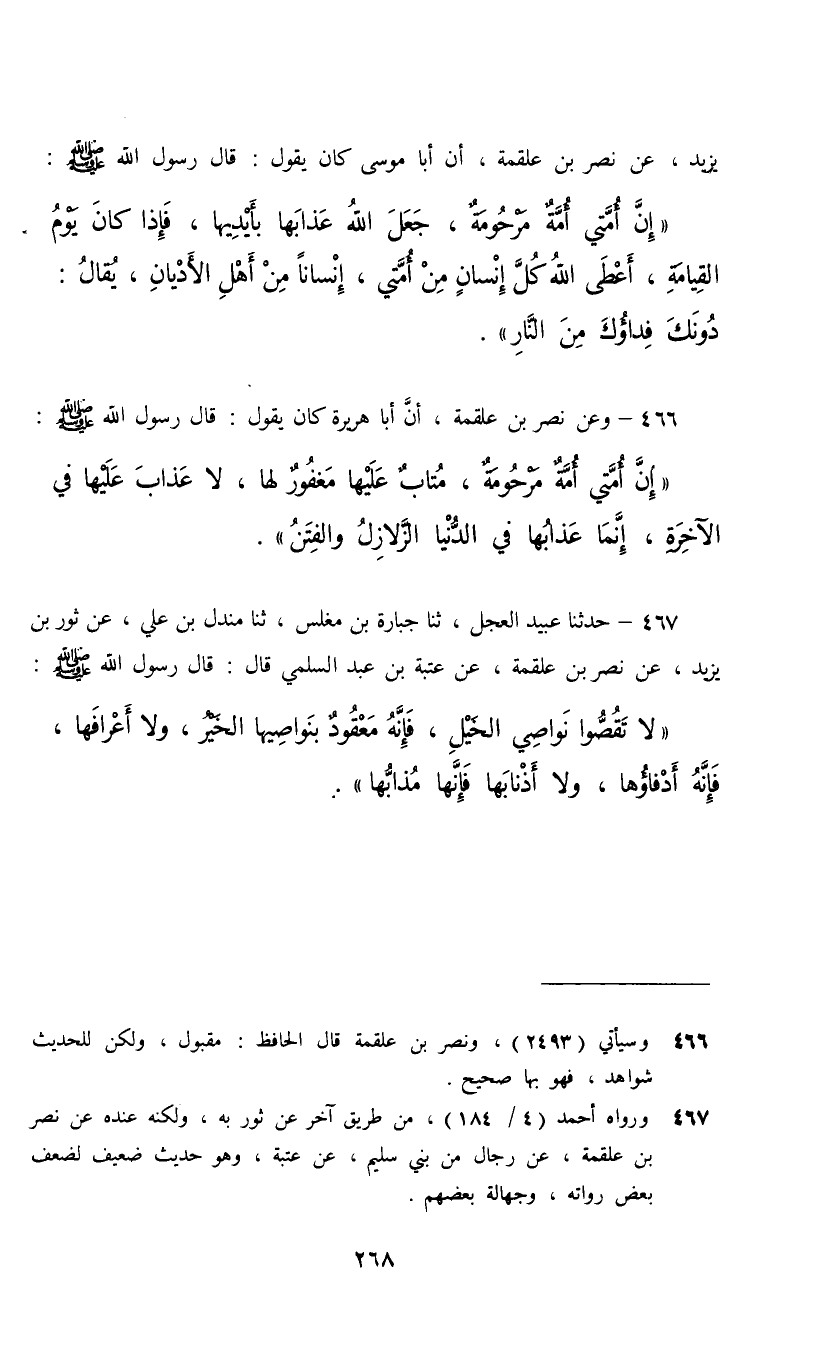 يزيد ، عن نصر بن علقمة ، أن أبا موسى كان يقول : قال رسول الله ﷺ :
« إِنَّ أُمَّتِي أُمَّةٌ مَرْحُومَةٌ ، جَعَلَ اللهُ عَذابَها بأَيْدِيها ، فَإِذا كانَ يَوْمُ
القِيامَةِ ، أَعْطَى اللهُ كُلَّ إِنْسانٍ مِنْ أُمَّتي ، إِنْساناً مِنْ أَهْلِ الأَدْيانِ ، يُقالُ :
دُونَكَ فِداؤُكَ مِنَ النَّارِ » .
٤٦٦ – وعن نصر بن علقمة ، أنَّ أبا هريرة كان يقول : قال رسول الله ﷺ :
« إِنَّ أُمَّتِي أُمَّةٌ مَرْحُومَةٌ ، مُتابٌ عَلَيْها مَغفُورٌ لها ، لا عَذابَ عَلَيْها في
الآخِرَةِ ، إِنَّمَا عَذابُها في الدُّنْيا الزَّلازِلُ والفِتَنُ » .
٤٦٧ – حدثنا عبيد العجل ، ثنا جبارة بن مغلس ، ثنا مندل بن علي ، عن ثور بن
يزيد ، عن نصر بن علقمة ، عن عتبة بن عبد السلمي قال : قال رسول الله ﷺ :
« لا تَقُصُّوا نَواصِي الخَيْلِ ، فَإِنَّهُ مَعْقُودٌ بنَواصِيها الخَيْرُ ، ولا أَعْرافَها ،
فَإِنَّهُ أَدْفاؤُها ، ولا أَذْنابَها فَإِنَّها مُذابُّها » .
٤٦٦ وسيأتي ( ٢٤٩٣ ) ، ونصر بن علقمة قال الحافظ : مقبول ، ولكن للحديث
شواهد ، فهو بها صحيح .
٤٦٧ ورواه أحمد ( ٤ / ١٨٤ ) ، من طريق آخر عن ثور به ، ولكنه عنده عن نصر
بن علقمة ، عن رجال من بني سليم ، عن عتبة ، وهو حديث ضعيف لضعف
بعض رواته ، وجهالة بعضهم .
٢٦٨